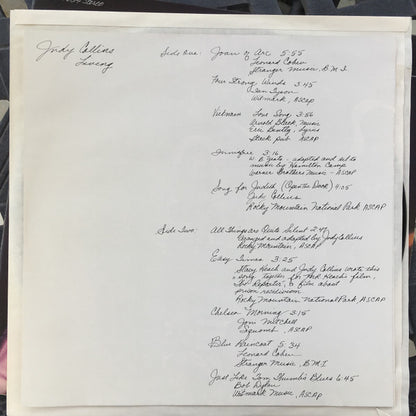 Stereo
Judy Collins
Living
Side One: Joan of Arc 5:55
Leonard Cohen
Stranger Music, B.M.I.
Four Strong Winds 3:45
Ian Tyson
Witmark, ASCAP
Vietnam Love Song 3:56
Arnold Black, Music
Eric Bentley, Lyrics
Stack Pub ASCAP
Innisfree 3:16
W. B. Yeats - adapted and set to
music by Hamilton Camp
Warner Brothers Music - ASCAP
Song for Judith (Open the Door) 4:05
Judy Collins
Rocky Mountain National Park ASCAP
Side Two: All Things are Quite Silent 2:47
Arranged and adapted by Judy Collins
Rocky Mountain, ASCAP
Easy Times 3:25
Stacy Keach and Judy Collins wrote this
song together for Mr. Keach's film,
The Repeater, a film about
prison recidivism
Rocky Mountain National Park ASCAP
Chelsea Morning 3:15
Joni Mitchell
Siquomb, ASCAP
Blue Raincoat 5:34
Leonard Cohen
Stranger Music, B.M.I.
Just Like Tom Thumb's Blues 6:45
Bob Dylan
Witmark Music, ASCAP